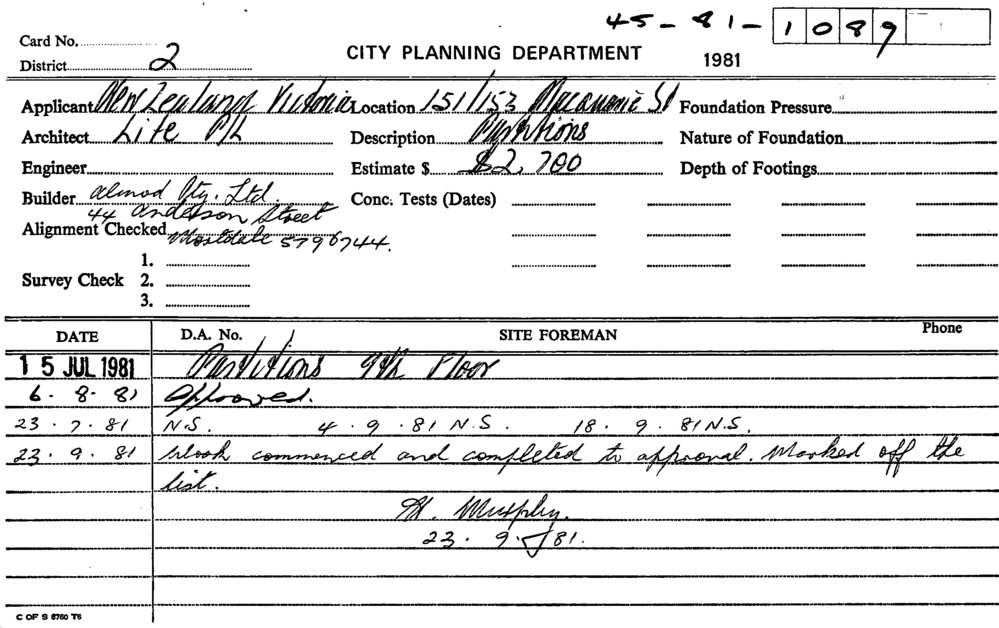 45-81-1089
Card No.
District 2 CITY PLANNING DEPARTMENT 1981
Applicant New Zealand Victoria Location 151/153 Macquarie St Foundation Pressure
Architect Life P/L Description Partitions Nature of Foundation
Engineer Estimate $ $2,700 Depth of Footings
Builder Almod Pty. Ltd. Conc. Tests (Dates)
44 Anderson Street
Alignment Checked Mortdale 5796744.
1.
Survey Check 2.
3.
DATE D.A. No. SITE FOREMAN Phone
15 JUL 1981 Partitions 9th Floor
6.8.81 Approved.
23.7.81 N.S. 4.9.81 N.S. 18.9.81 N.S.
23.9.81 Work commenced and completed to approval. Marked off the
list.
Murphy.
23.9.81.
C OF S 6760 T6